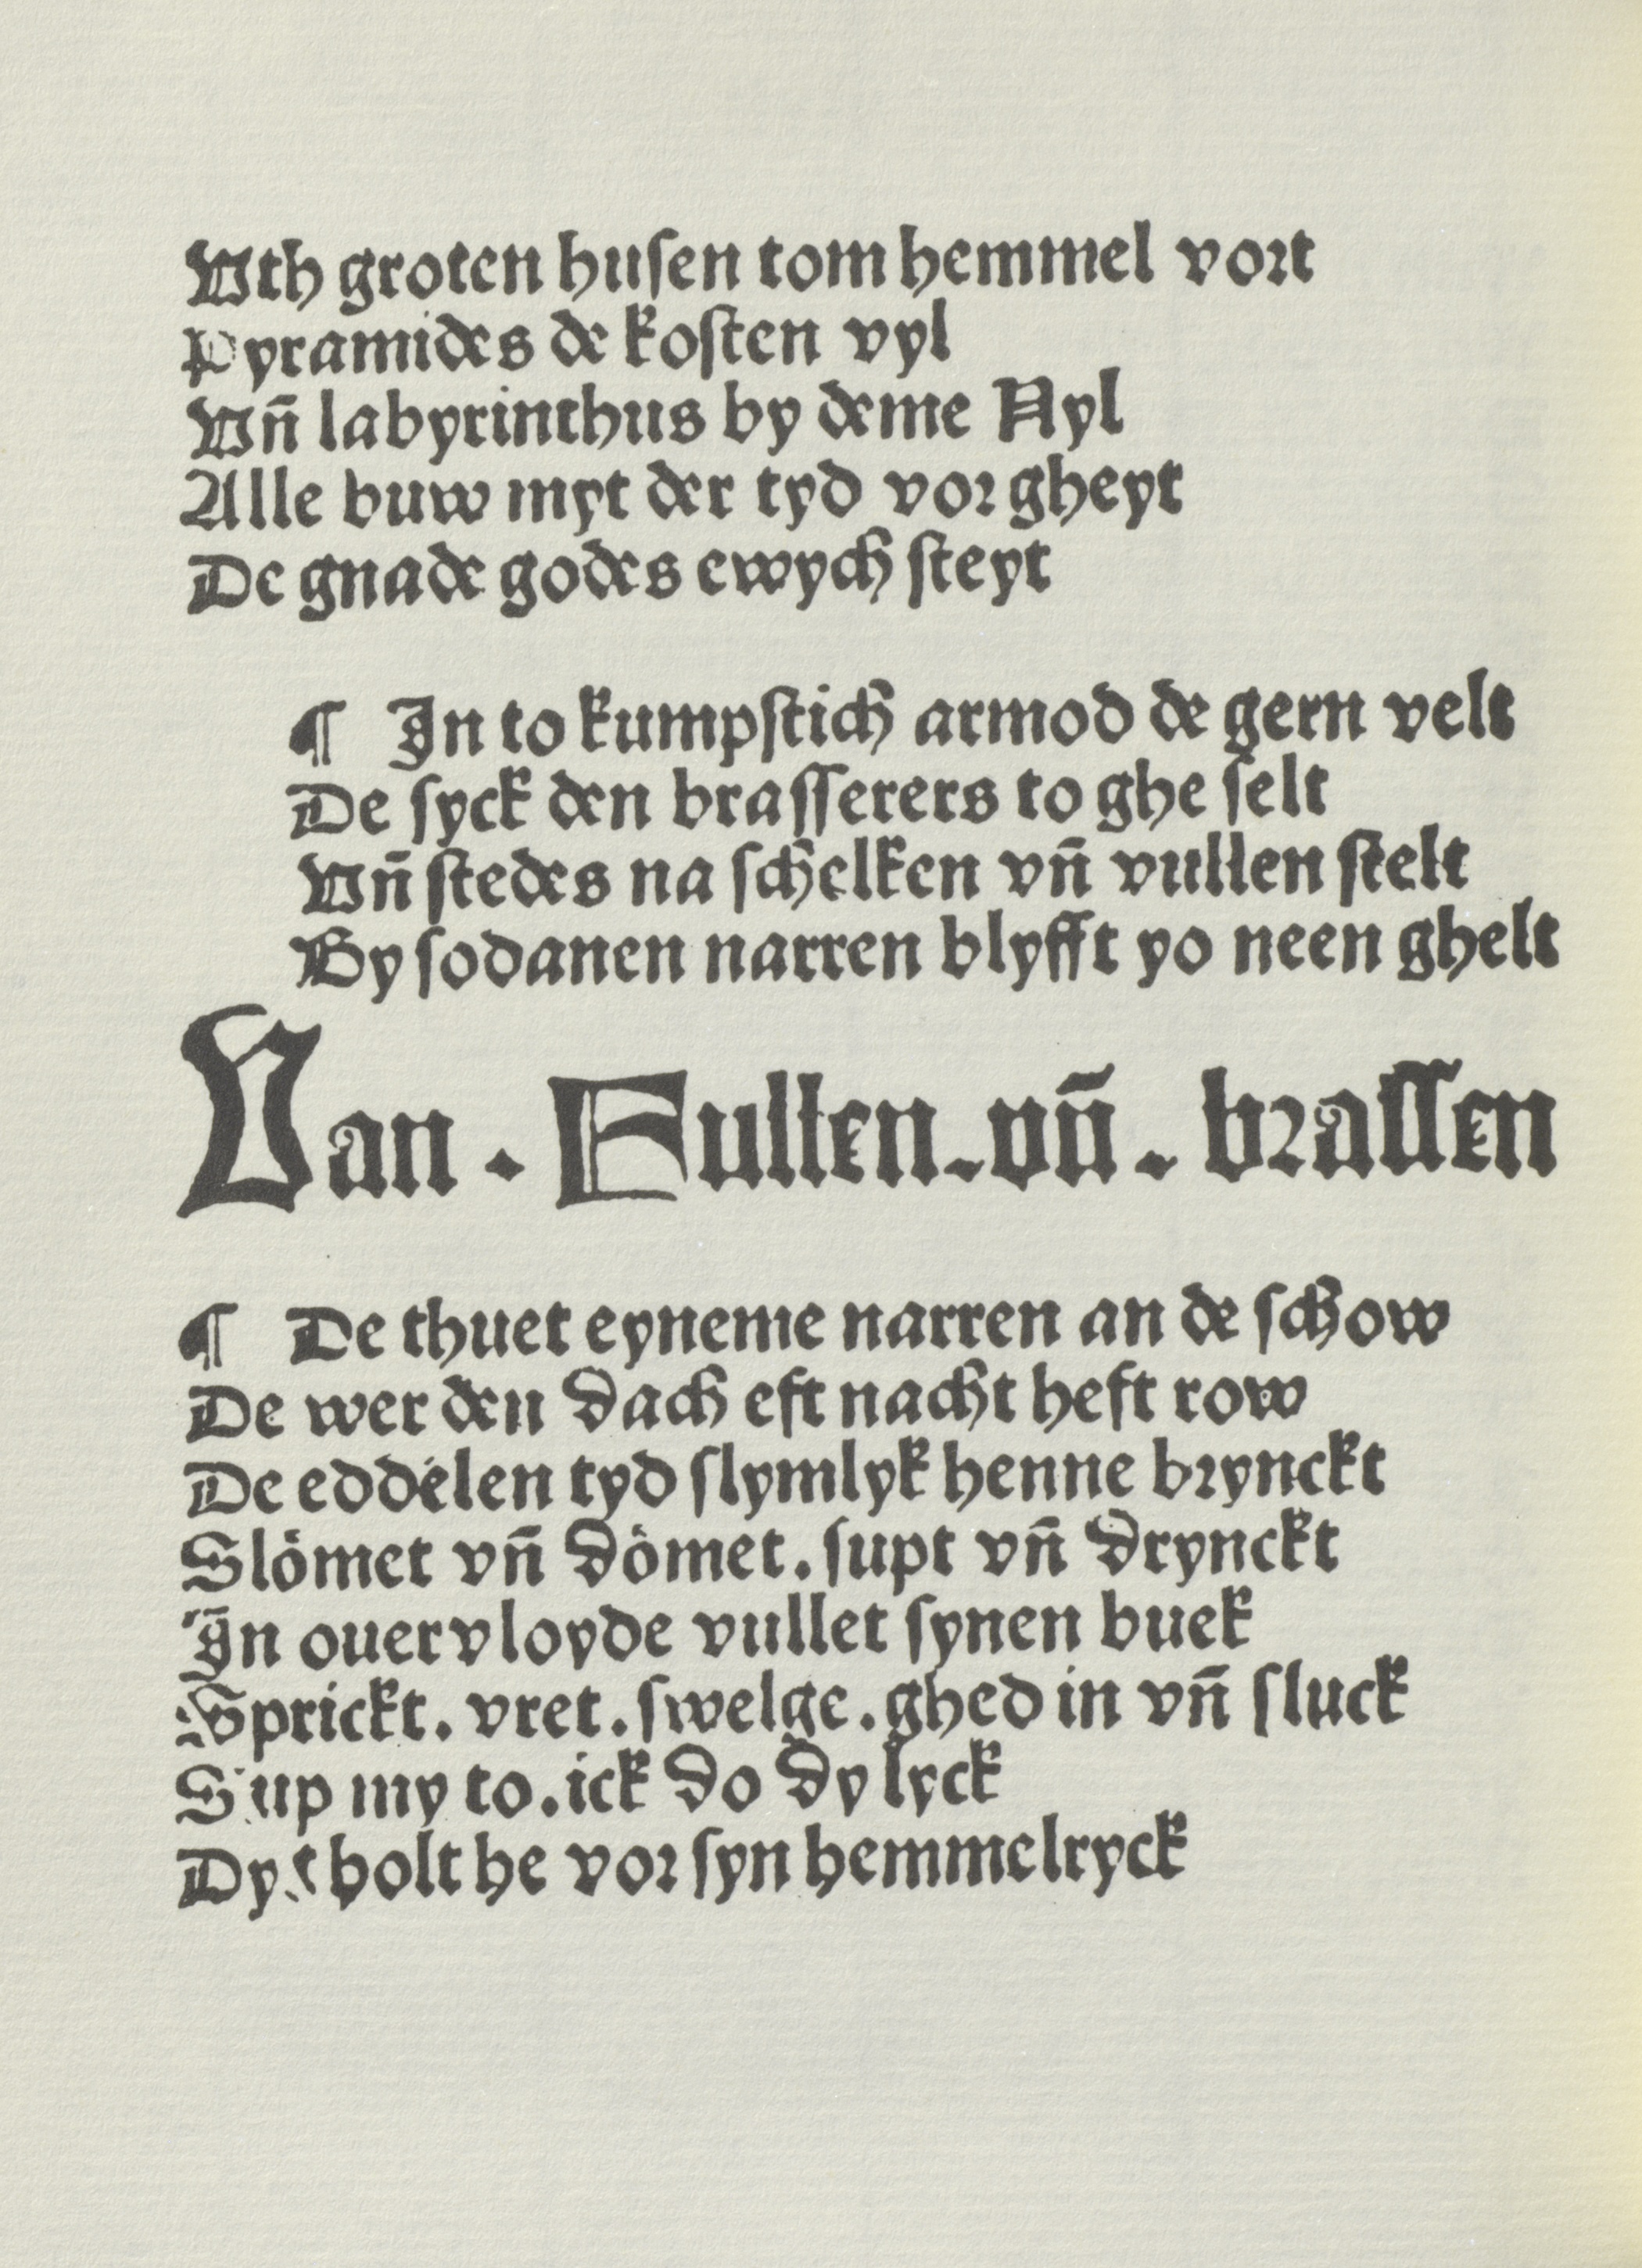 Vth groten huſen tom hemmel voꝛt
Pyramides de koſten vyl
Vn̄ labyrinthus by deme Nyl
Alle buw myt der tyd voꝛ gheyt
De gnade godes ewych ſteyt
¶ In to kumpſtich armod de gern velt
De ſyck den braſſerers to ghe ſelt
Vn̄ ſtedes na ſchelken vn̄ vullen ſtelt
By ſodanen narren blyfft yo neen ghelt
Van . Fullen . vn̄ . bꝛaſſen
¶ De thuet eyneme narren an de ſchow
De wer den dach eft nacht heft row
De eddelen tyd ſlymlyk henne bꝛynckt
Slömet vn̄ dömet . ſupt vn̄ drynckt
In ouervloyde vullet ſynen buek
Sprickt . vret . ſwelge . ghed in vn̄ ſluck
Sup my to . ick do dy lyck
Dyt holt he voꝛ ſyn hemmelryck